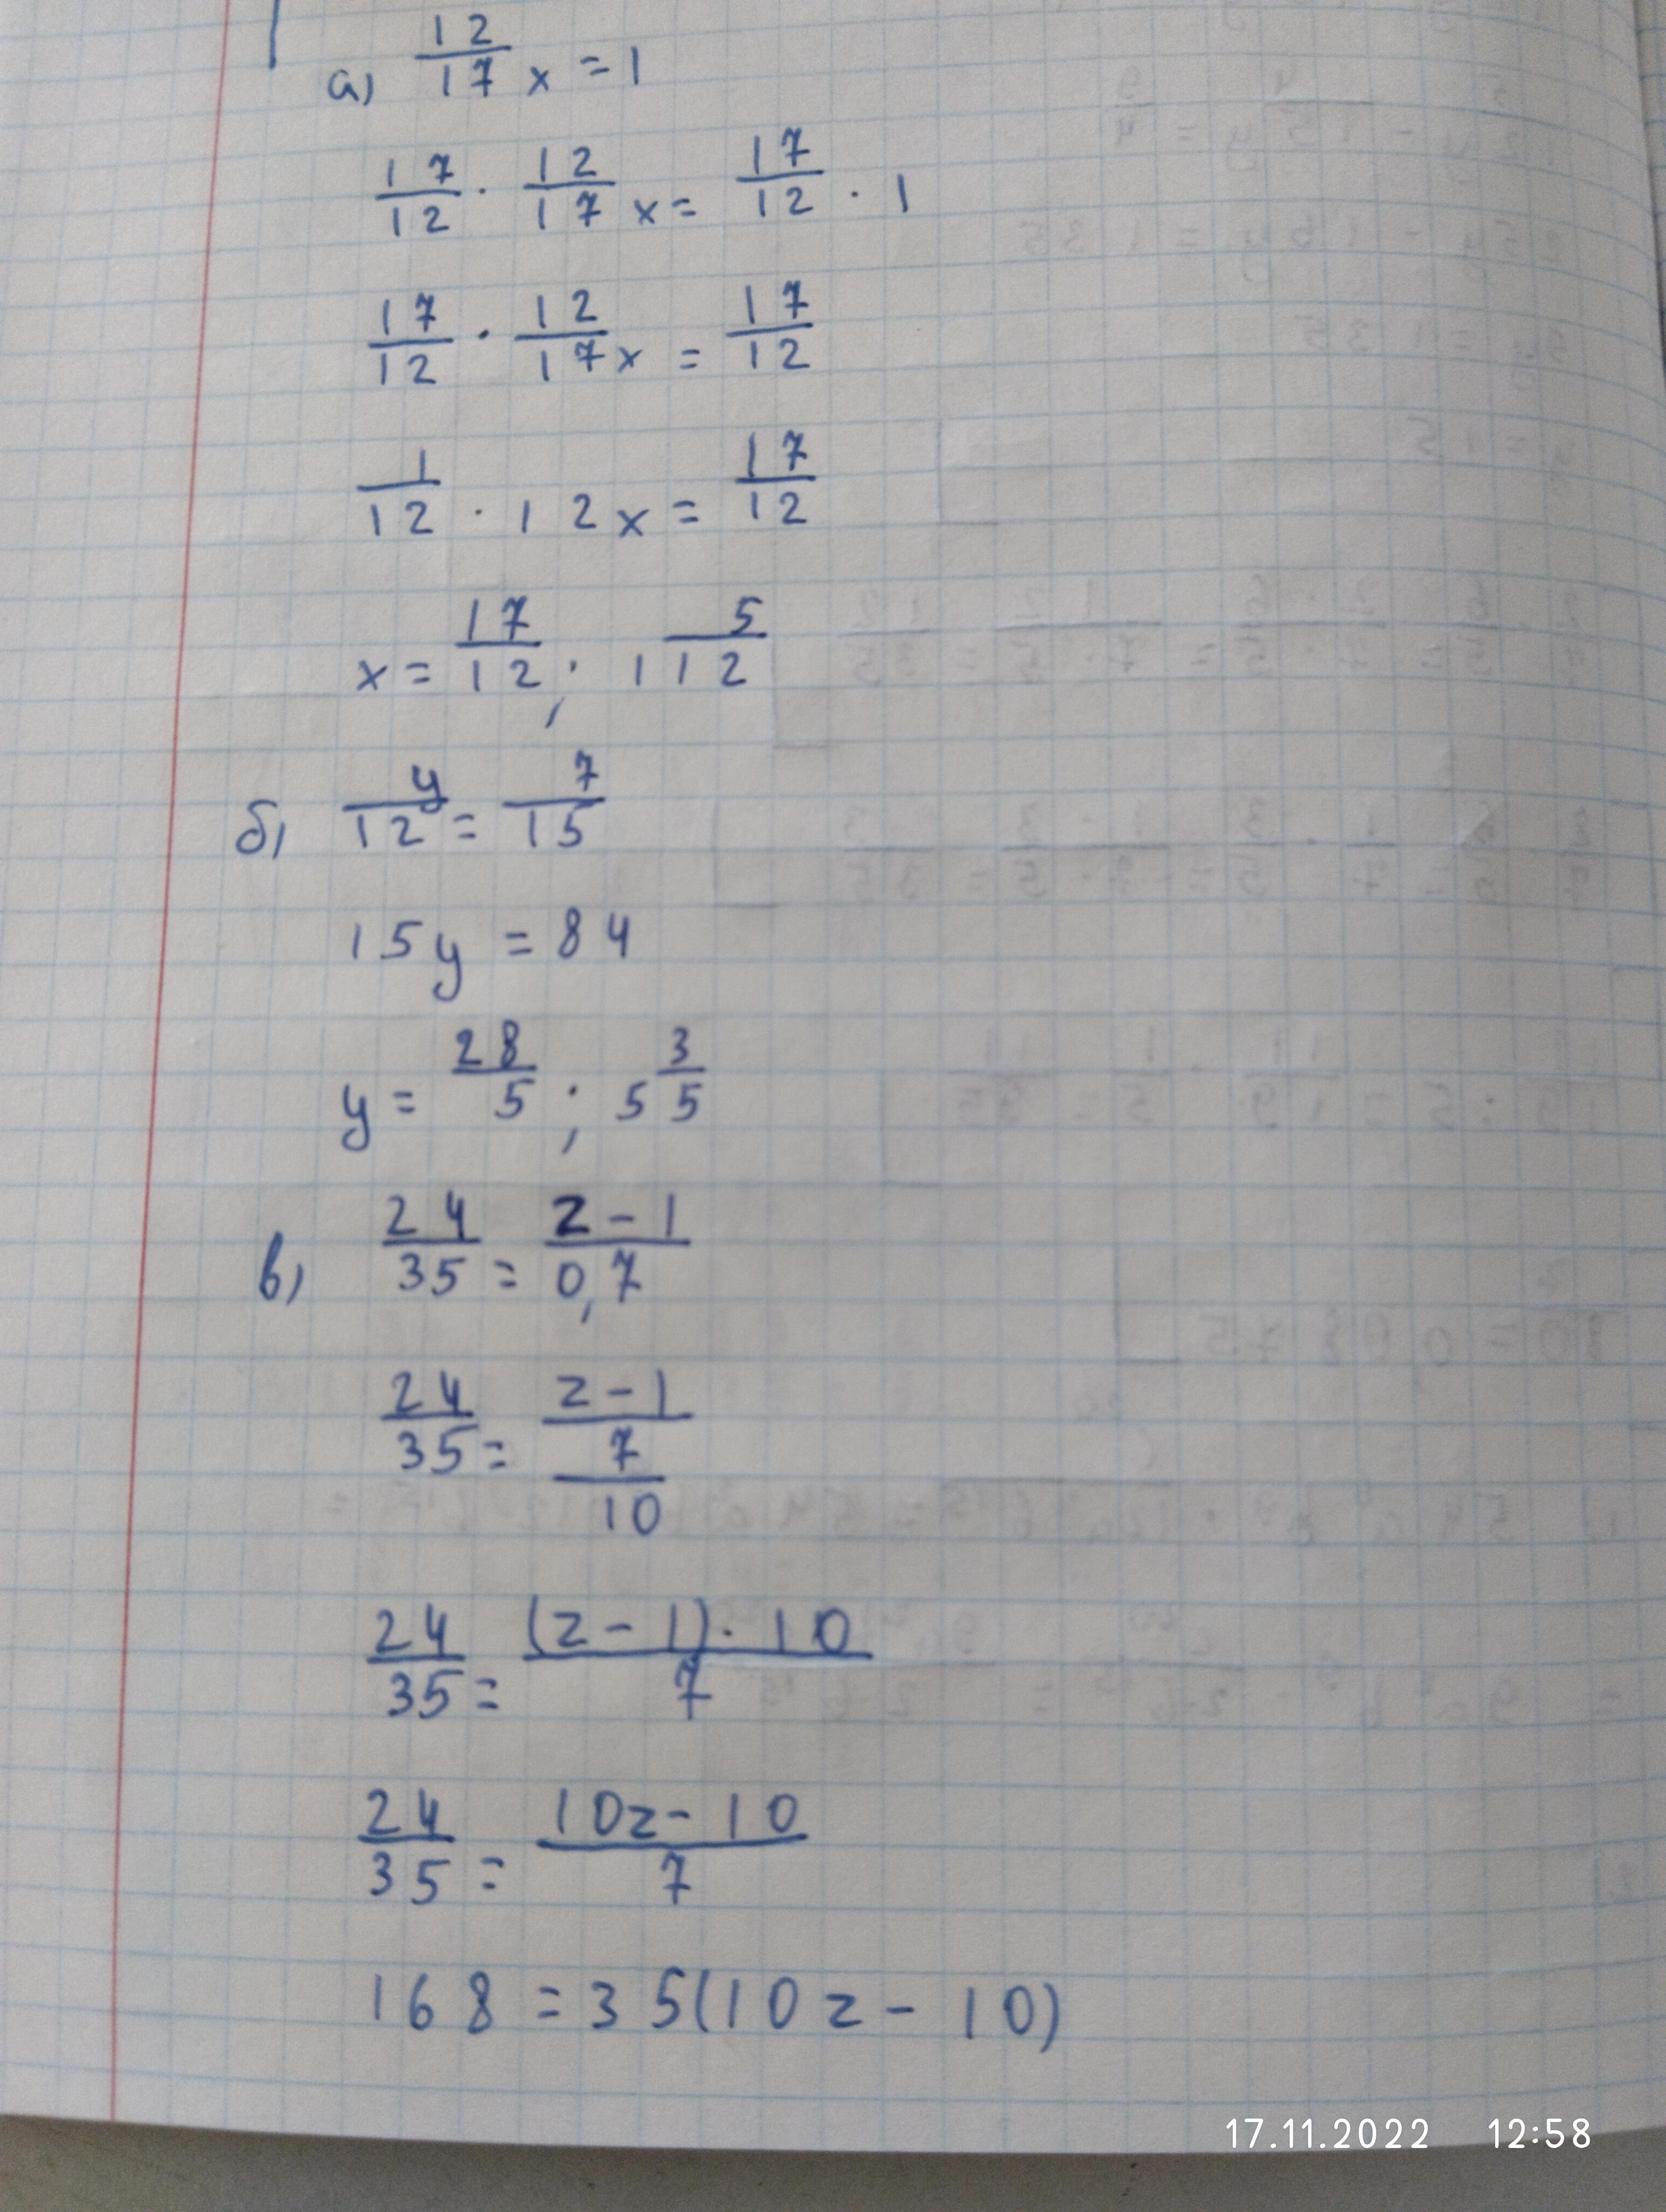 а) 12/17 x = 1
17/12 · 12/17 x = 17/12 · 1
17/12 · 12/17 x = 17/12
1/12 · 12x = 17/12
x = 17/12 ; 1 5/12
б) y/12 = 7/15
15y = 84
y = 28/5 ; 5 3/5
в) 24/35 = z-1/0,7
24/35 = z-1/7/10
24/35 = (z-1)·10/7
24/35 = 10z-10/7
168 = 35(10z - 10)
17.11.2022 12:58